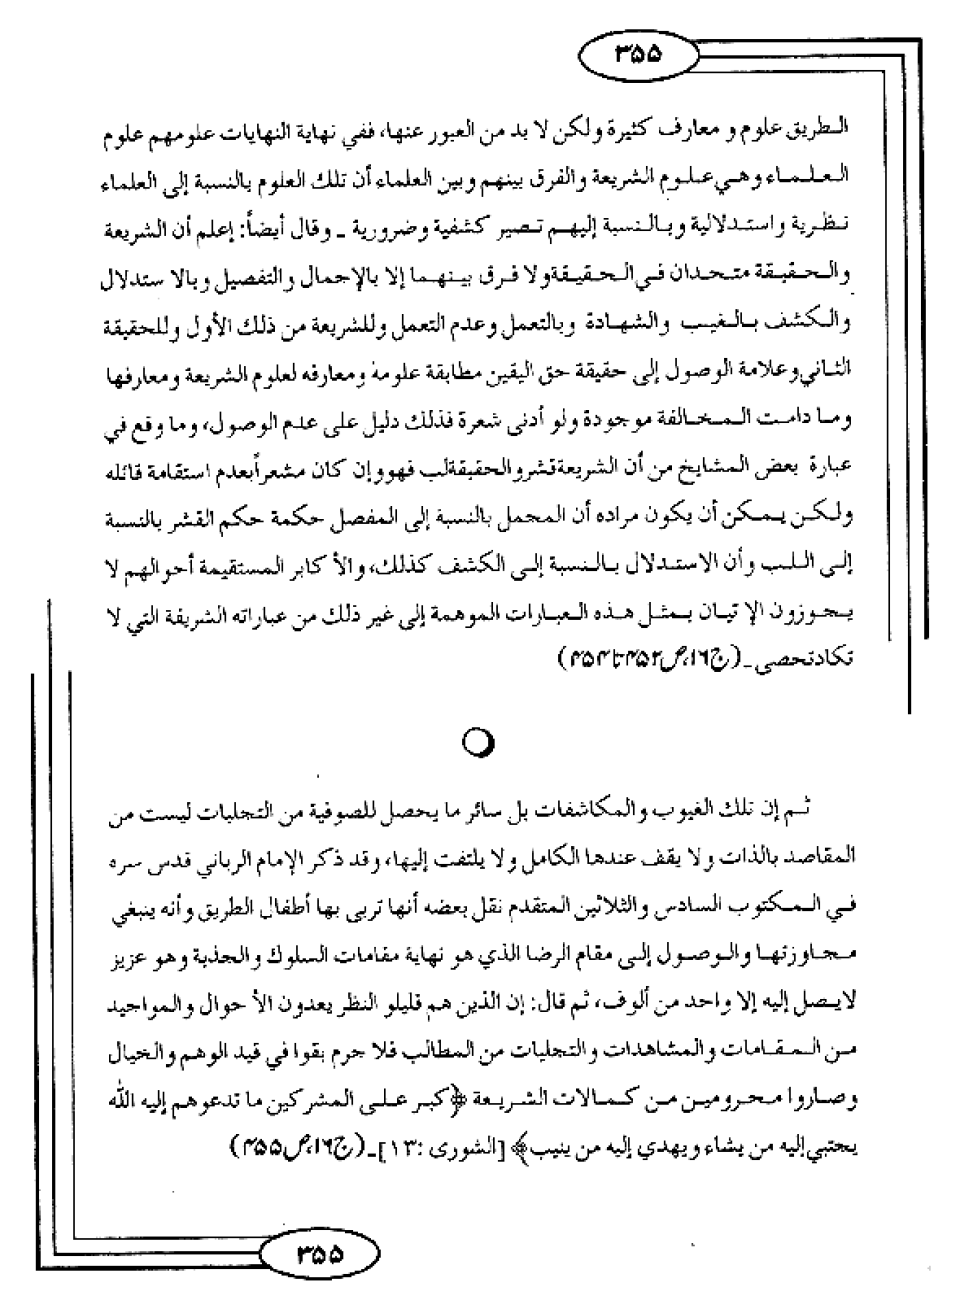 ۳۵۵
الطريق علوم و معارف كثيرة ولكن لا بد من العبور عنها، ففي نهاية النهايات علومهم علوم
العلماء وهي علوم الشريعة والفرق بينهم وبين العلماء أن تلك العلوم بالنسبة إلى العلماء
نظرية واستدلالية وبالنسبة إليهم تصير كشفية وضرورية ـ وقال أيضاً: إعلم أن الشريعة
والحقيقة متحدان في الحقيقة ولا فرق بينهما إلا بالإجمال والتفصيل وبالا ستدلال
والكشف بالغيب والشهادة وبالتعمل وعدم التعمل وللشريعة من ذلك الأول وللحقيقة
الثاني وعلامة الوصول إلى حقيقة حق اليقين مطابقة علومه ومعارفه لعلوم الشريعة ومعارفها
وما دامت المخالفة موجودة ولو أدنى شعرة فذلك دليل على عدم الوصول، وما وقع في
عبارة بعض المشايخ من أن الشريعة قشر والحقيقة لب فهو وإن كان مشعراً بعدم استقامة قائله
ولكن يمكن أن يكون مراده أن المجمل بالنسبة إلى المفصل حكمة حكم القشر بالنسبة
إلى اللب وأن الاستدلال بالنسبة إلى الكشف كذلك، والأ كابر المستقيمة أحوالهم لا
يجوزون الإ تيان بمثل هذه العبارات الموهمة إلى غير ذلك من عباراته الشريفة التي لا
تكاد تحصى ـ (ج۱۶، ص۴۵۲ تا ۴۵۴)
ثم إن تلك الغيوب والمكاشفات بل سائر ما يحصل للصوفية من التجليات ليست من
المقاصد بالذات ولا يقف عندها الكامل ولا يلتفت إليها، وقد ذكر الإمام الرباني قدس سره
في المكتوب السادس والثلاثين المتقدم نقل بعضه أنها تربى بها أطفال الطريق وأنه ينبغي
مجاوزتها والوصول إلى مقام الرضا الذي هو نهاية مقامات السلوك والجذبة وهو عزيز
لا يصل إليه إلا واحد من ألوف، ثم قال: إن الذين هم قليلو النظر يعدون الأ حوال والمواجيد
من المقامات والمشاهدات والتجليات من المطالب فلا جرم بقوا في قيد الوهم والخيال
وصاروا محرومين من كمالات الشريعة ﴿كبر على المشركين ما تدعوهم إليه الله
يجتبي إليه من يشاء ويهدي إليه من ينيب﴾ [الشورى :۱۳]ـ (ج۱۶، ص۴۵۵)
۳۵۵